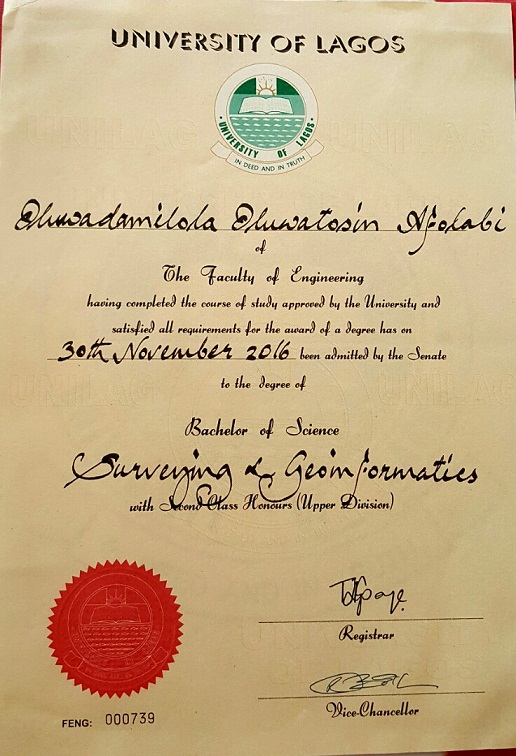 UNIVERSITY OF LAGOS
UNIVERSITY OF LAGOS
IN DEED AND IN TRUTH
Oluwadamilola Oluwatosin Afolabi
of
The Faculty of Engineering
having completed the course of study approved by the University and
satisfied all requirements for the award of a degree has on
30th November 2016 been admitted by the Senate
to the degree of
Bachelor of Science
Surveying & Geoinformatics
with Second Class Honours (Upper Division)
Registrar
Vice-Chancellor
FENG: 000739